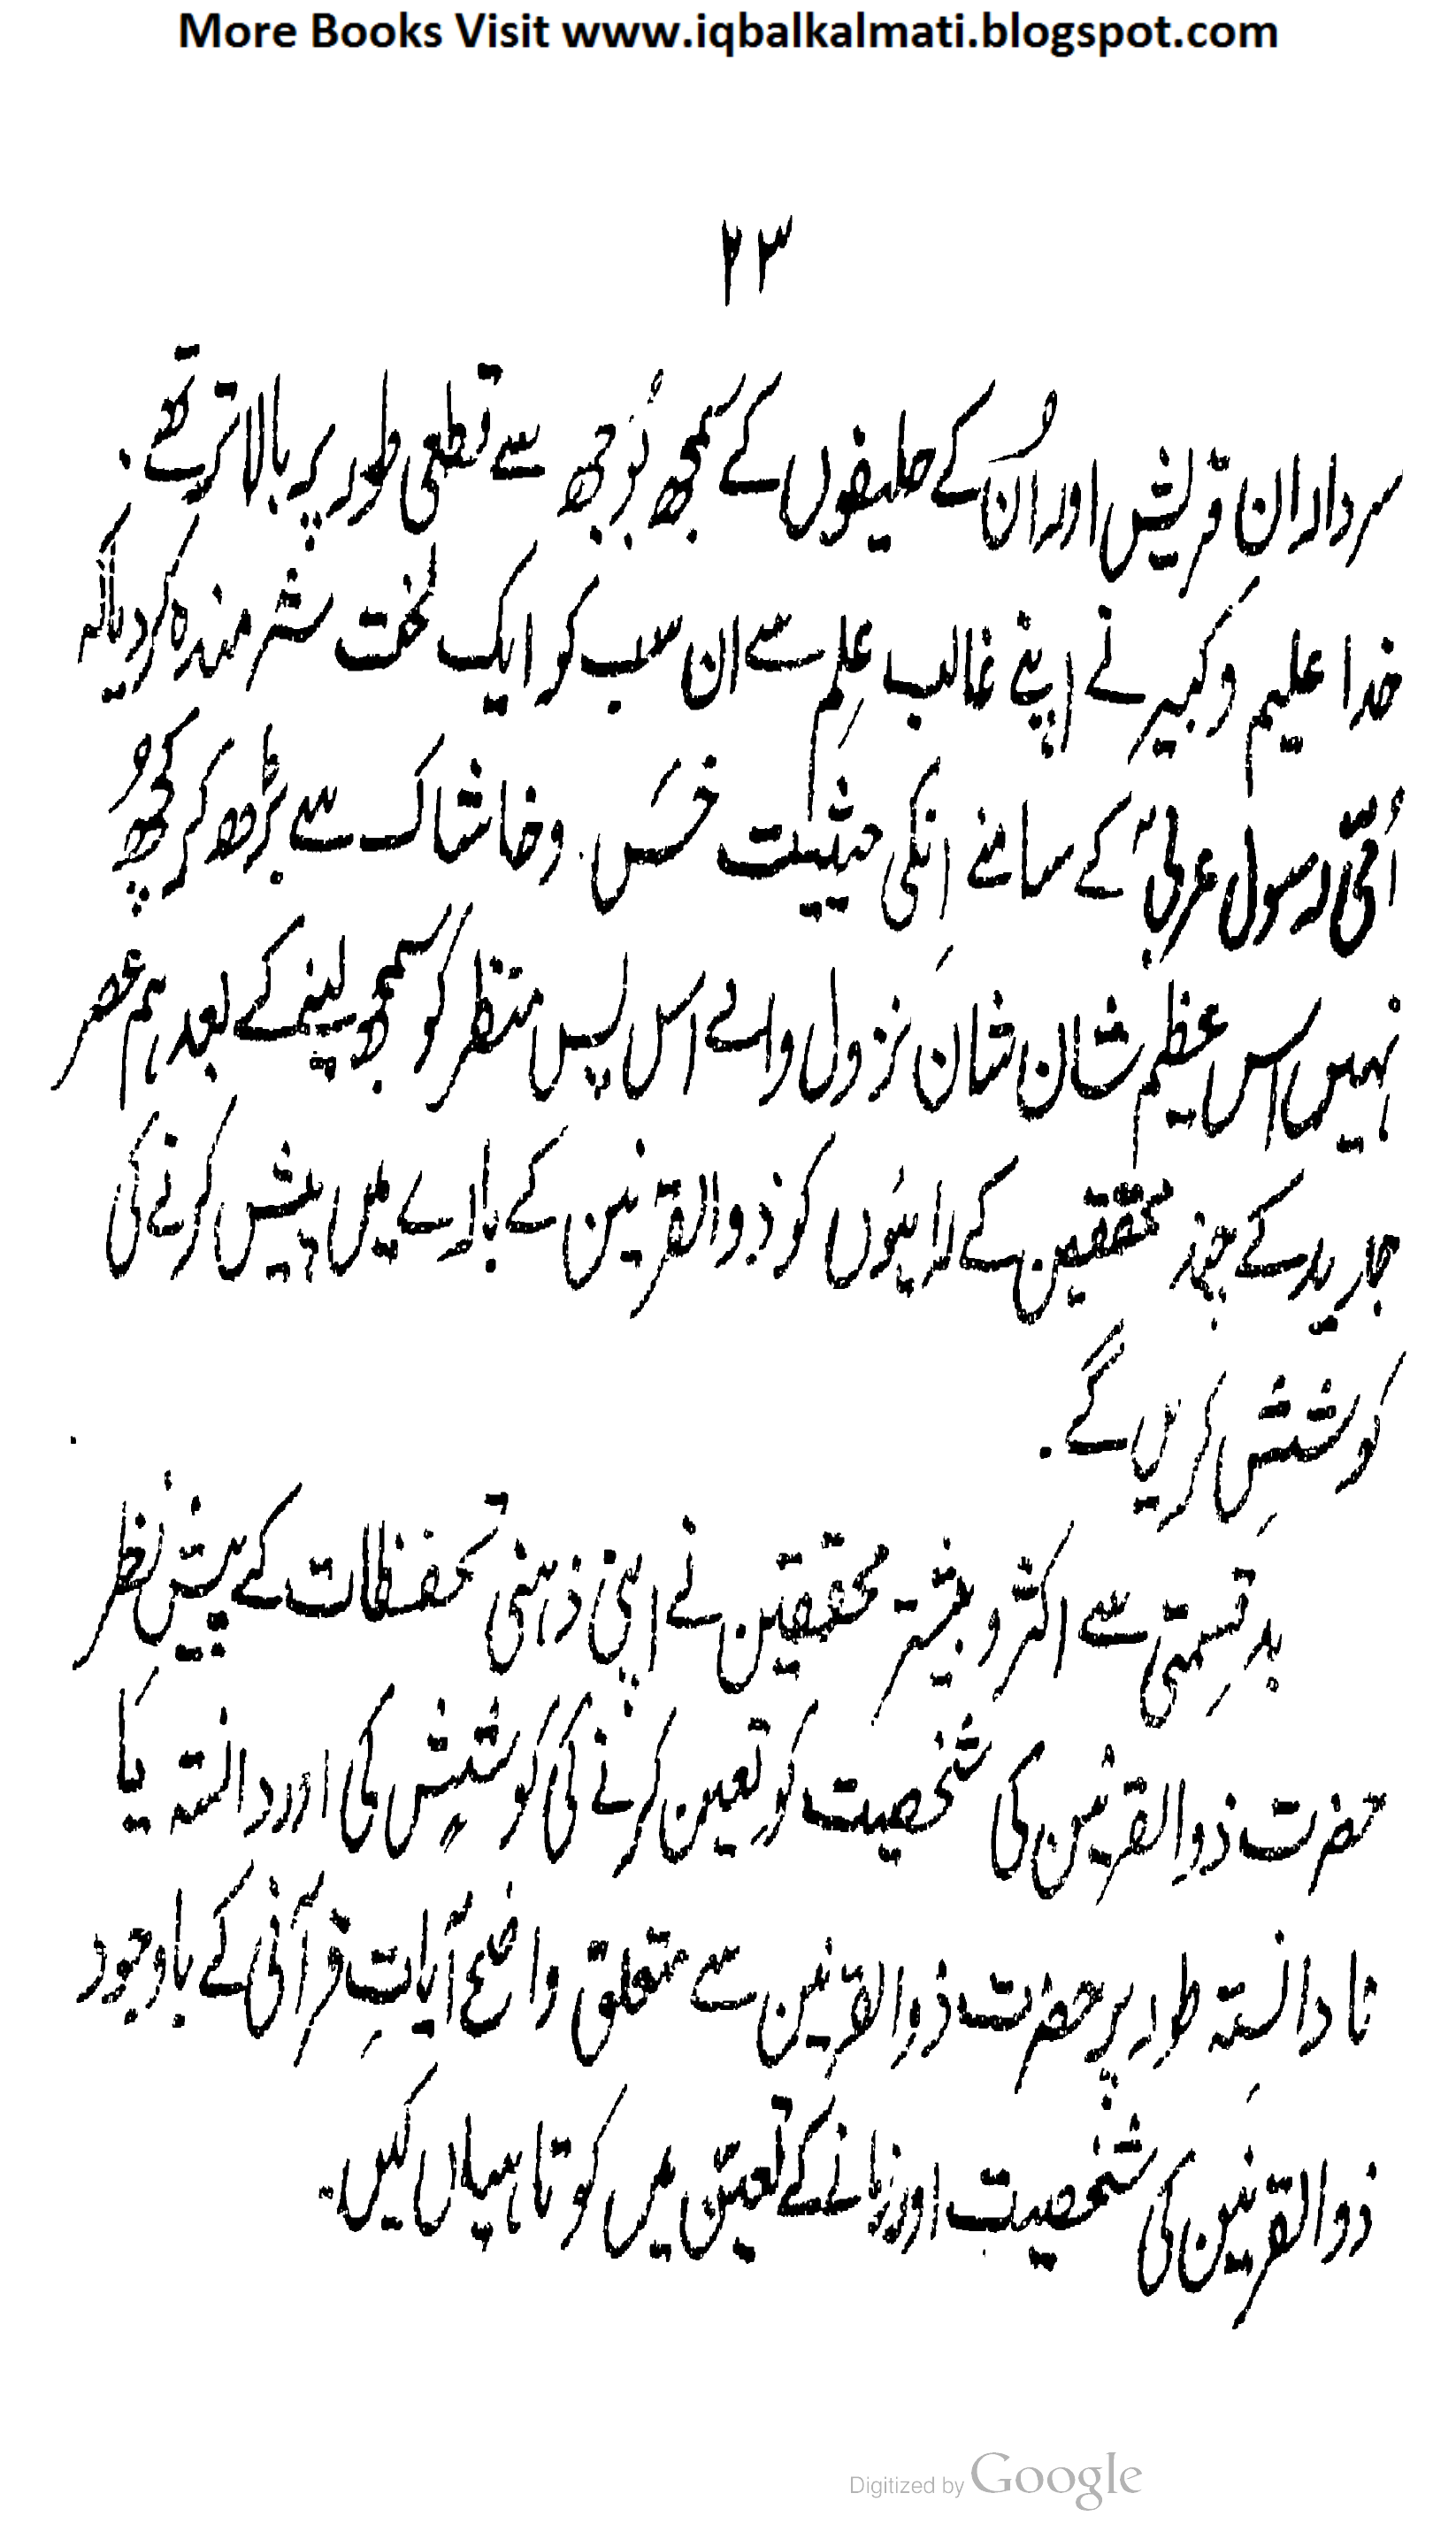 More Books Visit www.iqbalkalmati.blogspot.com
۲۳
سرداران قریش اور اُن کے حلیفوں کے سمجھ بُوجھ سے قطعی طور پر بالا تر تھے۔
خدا علیم و کبیر نے اپنے غالب عِلم سے ان سب کو ایک لخت شرمندہ کر دیا کہ
اُمّی رسول عربیؐ کے سامنے اِنکی حیثیت خَس و خاشاک سے بڑھ کر کُچھ
نہیں اس عظیم شان شانِ نزول والے اس پس منظر کو سمجھ لینے کے بعد ہم عصر
جدید کے چند محققین کے رایئوں کو ذوالقرنین کے بارے میں پیش کرنے کی
کوشِش کریں گے۔
بدقسمتی سے اکثر و بیشتر محققین نے اپنی ذہنی تحفظات کے پیشِ نظر
حضرت ذوالقرنین کی شخصیت کو تعین کرنے کی کوشِش کی اور دانستہ یا
نا دانستہ طور پر حضرت ذوالقرنین سے متعلق واضح آیاتِ قرآنی کے باوجود
ذوالقرنَین کی شخصیت اور زمانے کے تعیّن میں کوتاہیاں کیں۔
Digitized by Google